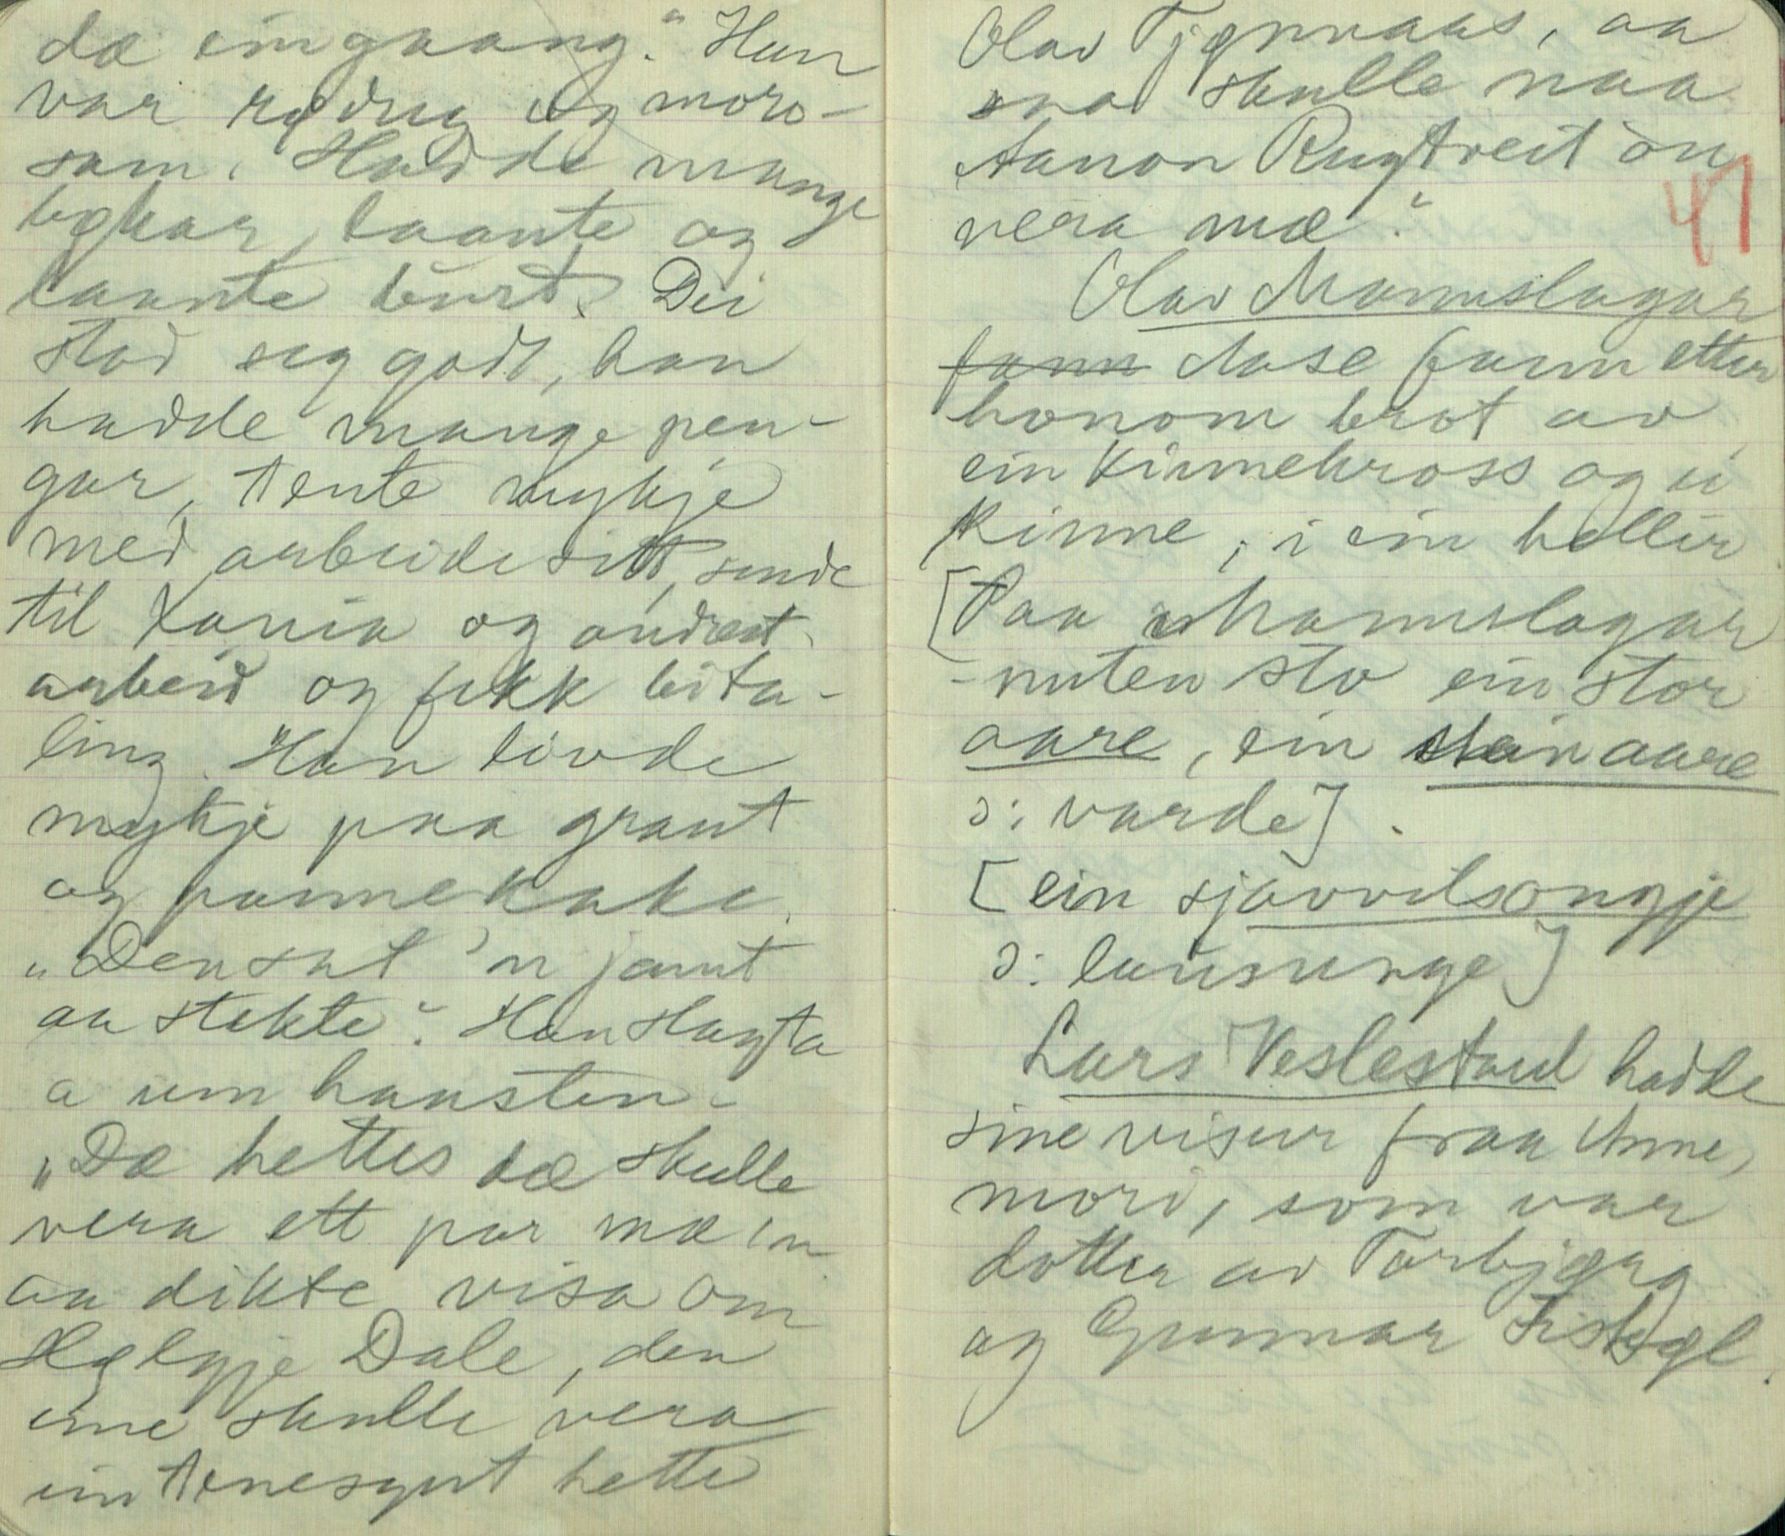 dæ eingaang." Han
var rødug og moro-
sam. Hadde mange
bøkar, laante og
laante burt. Dei
stod seg godt, han
hadde mange pen-
gar, tente mykje
med arbeide sitt, sende
til Xania og
arbeid og fekk beta-
ling. Han livde
mykje paa graut
og pannekake.
„Den sat 'n jamt
aa stekte". Han slagta
a um hausten.
„Dæ hettes dæ skulle
vera ett par mæ in
aa dikte visa om
Hølgje Dale, den
eine skulle vera
ein tenesgut hette
Olav Tjønnaas, aa
sna skulle naa
Aanon Rugtveit ou
vera mæ."
47
Olav Mannslagar
fann Aase fann etter
honom brot av
ein kinnekross og ei
kinne, i ein hellir
[Paa Mannslagar
-nuten sto ein stor
aare, ein steinaare
ɔ: varde].
[ein sjøvvilsongje
ɔ: lausunge]
Lars Veslestaul hadde
sine visur fraa Anne,
mori, som var
dotter av Torbjørg
og Gunnar Fiskøl.